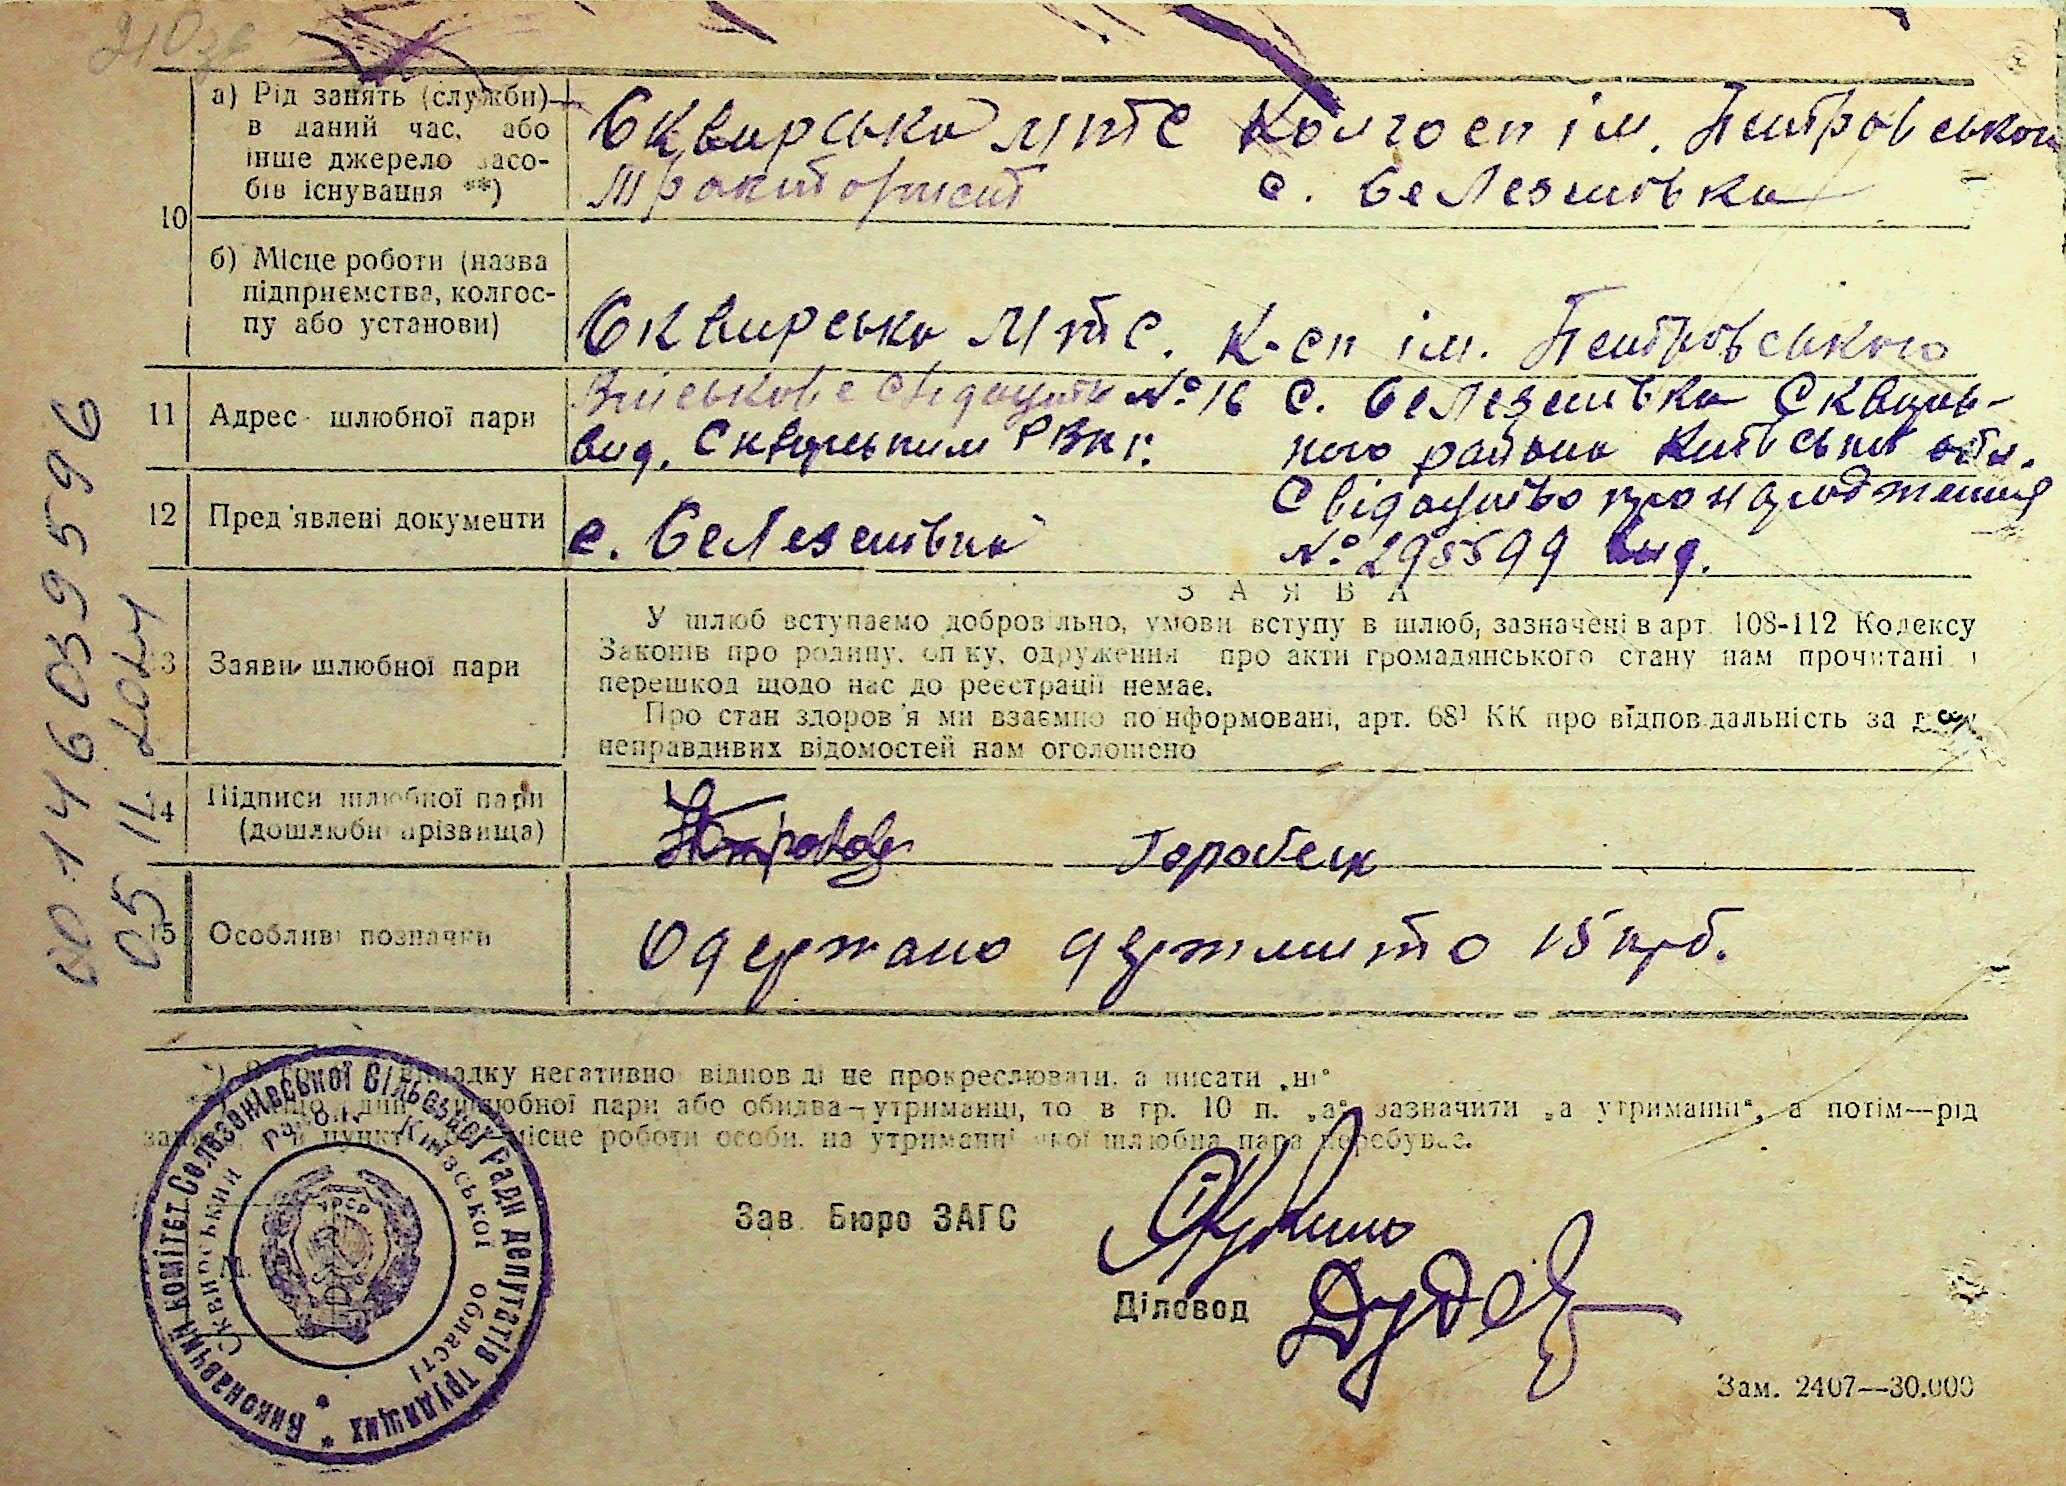 а) Рід занять (служби) в даний час, або інше джерело засобів існування **)
Сквирська МТС Колгосп ім. Петровського
тракторист с. Селезенівка
10
б) Місце роботи (назва підприємства, колгоспу або установи)
Сквирська МТС. К-сп ім. Петровського
11 Адрес шлюбної пари
Військове свідоцтв №16 с. Селезенівка Сквирсь-
вид. Сквирським РВК г. кого района Київської обл.
12 Пред'явлені документи
Свідоцтво про народження
с. Селезенівка №295599 вид.
ЗАЯВА
13 Заяви шлюбної пари
У шлюб вступаємо добровільно, умови вступу в шлюб, зазначені в арт. 108-112 Кодексу
Законів про родину, опіку, одруження про акти громадянського стану нам прочитані і
перешкод щодо нас до реєстрації немає.
Про стан здоров'я ми взаємно поінформовані, арт. 68¹ КК про відповідальність за
неправдивих відомостей нам оголошено
14 Підписи шлюбної пари
(дошлюбні прізвища)
Горобець
15 Особливі позначки
Одержано держмито 15 крб.
випадку негативно відповіді не прокреслювати, а писати „ні"
шлюбної пари або обидва—утриманці, то в гр. 10 п. „а" зазначити „а утриманні", а потім—рід
місце роботи особи, на утриманні якої шлюбна пара перебуває.
Виконавчий комітет Селезенівської Сільської Ради депутатів трудящих
Сквирський район Київської області
УРСР
Зав. Бюро ЗАГС
Діловод
Зам. 2407—30.000
00146039596
05 12 2024